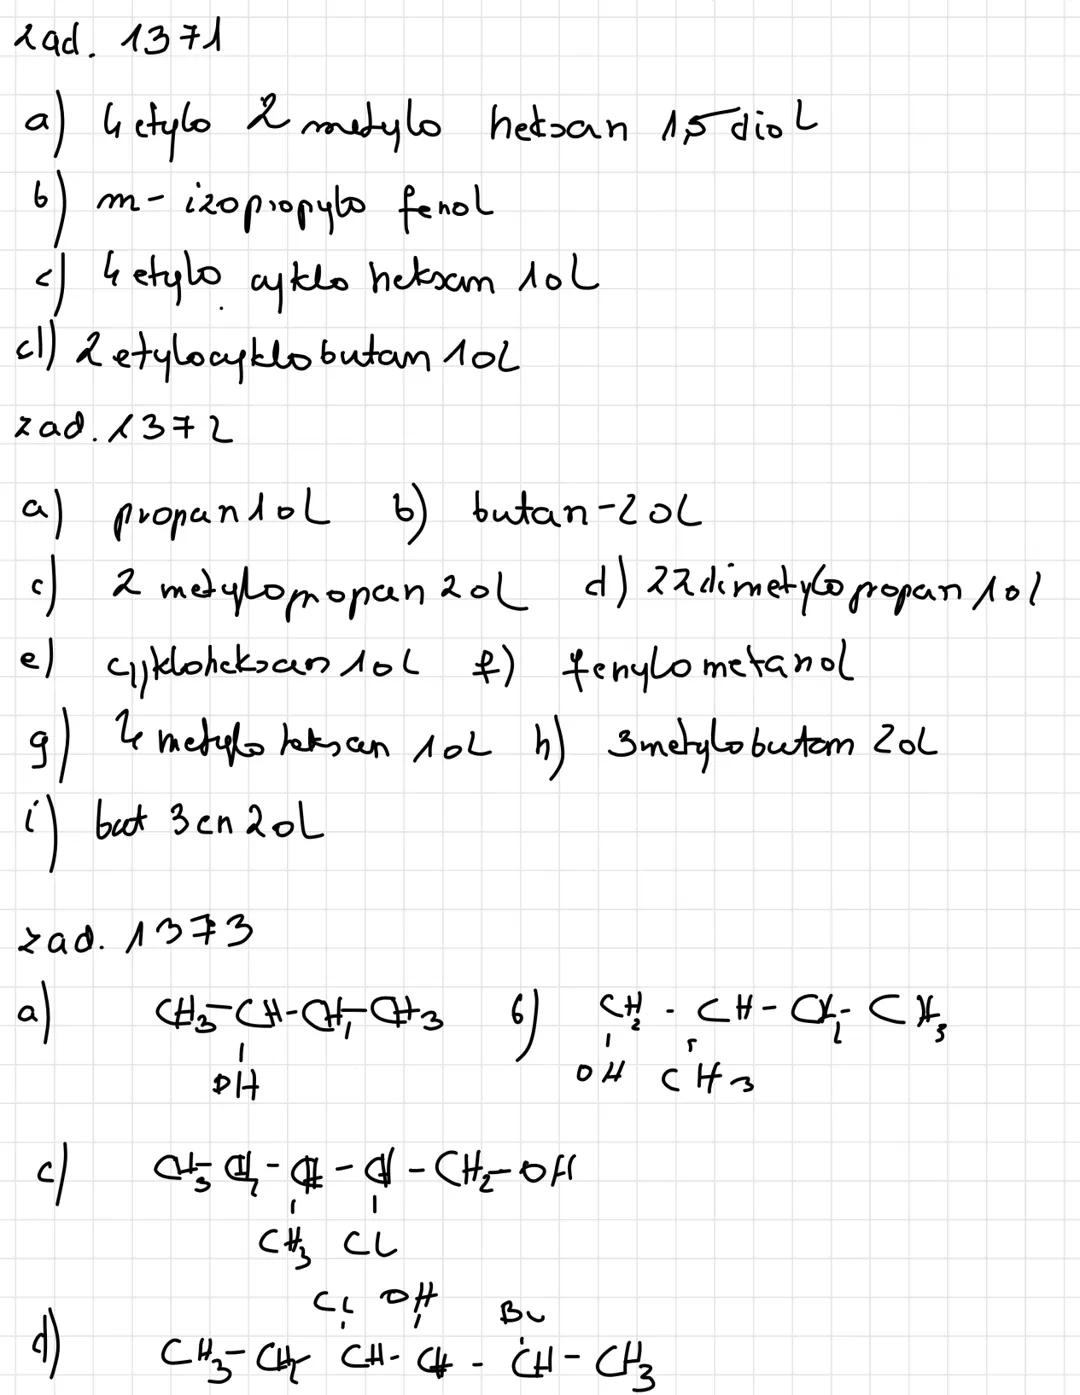 zad. 1371
a) 4 etylo 2 metylo heksan 1,5 diol
b) m- izopropylo fenol
c) 4 etylo cyklo heksan 1ol
d) 2 etylocyklobutan 1ol
zad. 1372
a) propan1ol b) butan-2ol
c) 2 metylopropan 2ol d) 22dimetylopropan 1ol
e) cykloheksan 1ol f) fenylometanol
g) 4 metylo heksan 1ol h) 3metylobutan 2ol
i) but 3en2ol
zad. 1373
a) CH3-CH-CH2-CH3 b) CH2-CH-CH2-CH3
OH OH CH3
c) CH3-CH2-CH-CH-CH2-OH
CH3 Cl
Cl OH Br
d) CH3-CH2-CH-CH-CH-CH3